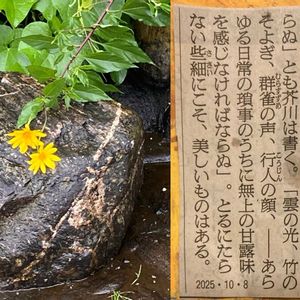 らぬ」とも芥川は書く。「雲の光、竹の
そよぎ、群雀の声、行人の顔、――あら
ゆる日常の瑣事のうちに無上の甘露味
を感じなければならぬ」。とるにたら
ない些細にこそ、美しいものはある。
2025・10・8